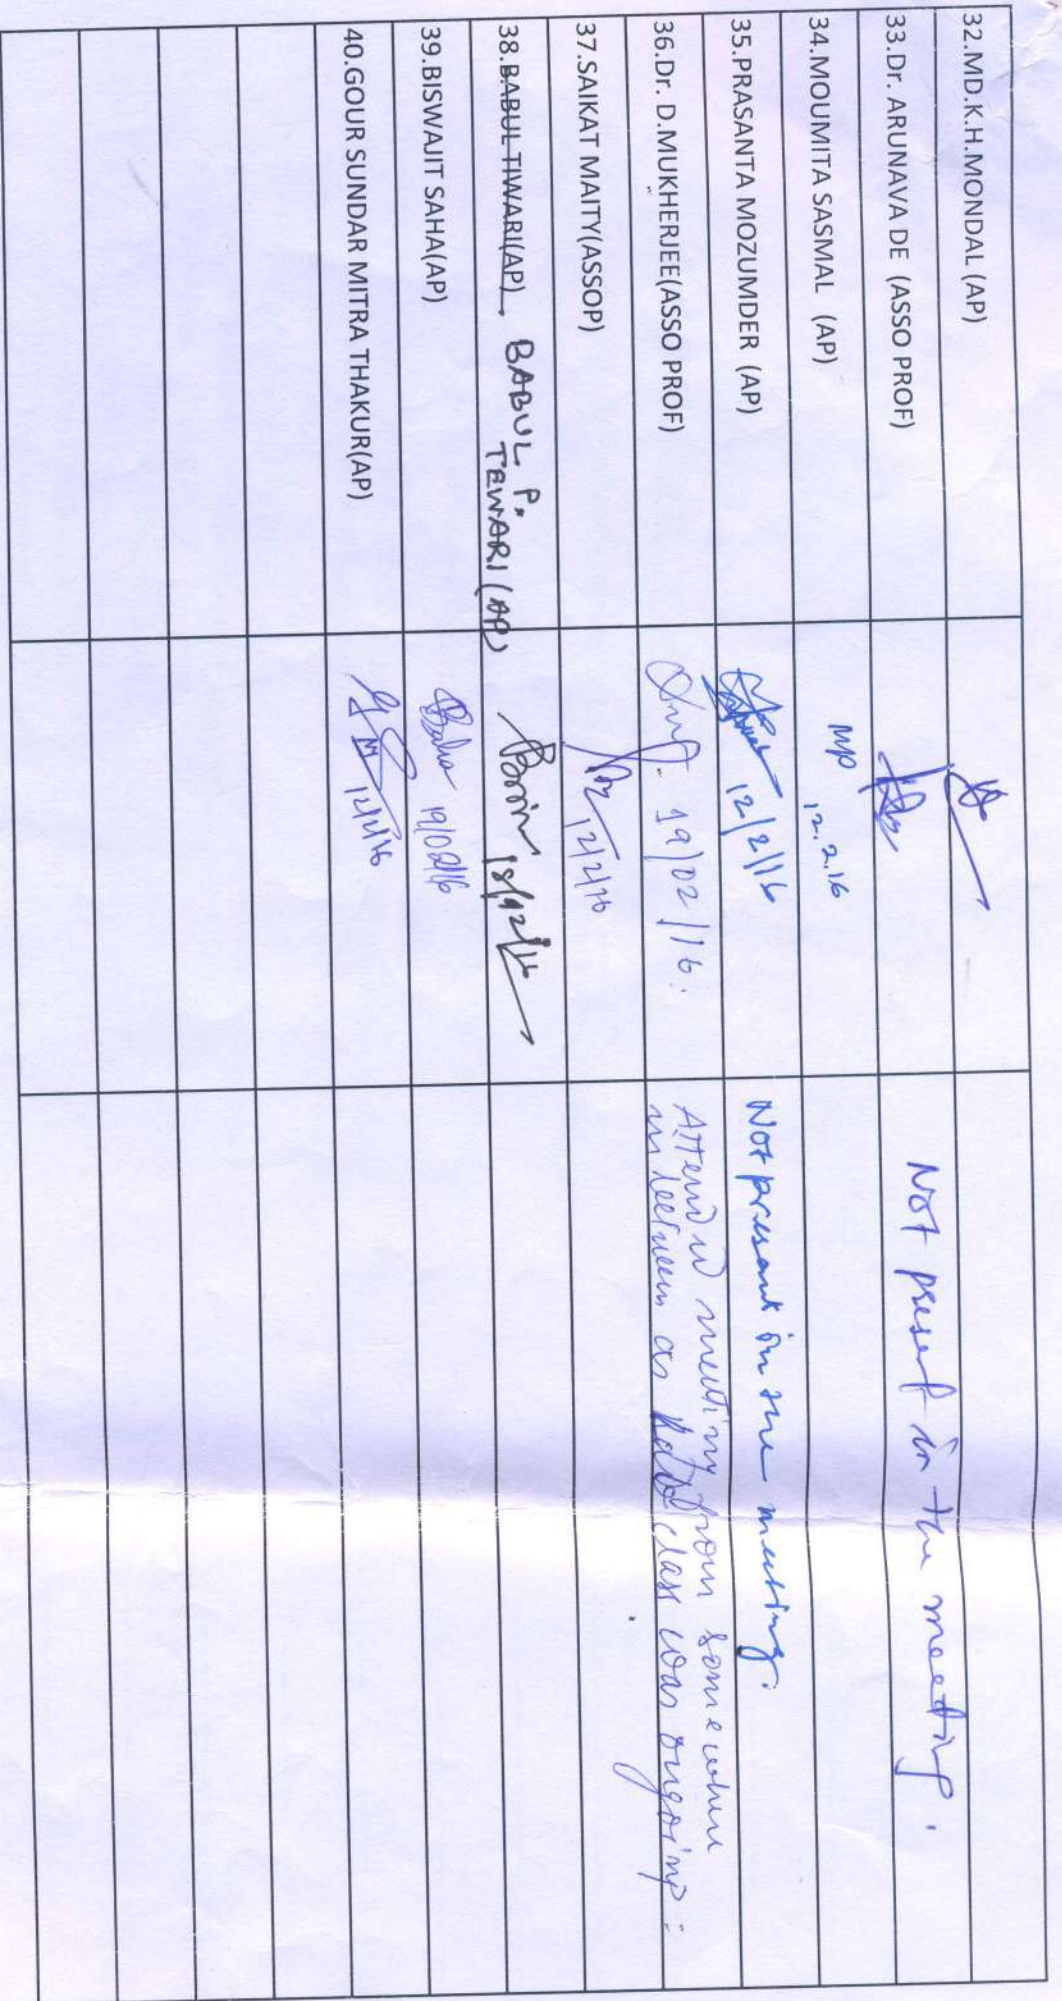 32.MD.K.H.MONDAL (AP)
33.Dr. ARUNAVA DE (ASSO PROF) Not present in the meeting.
34.MOUMITA SASMAL (AP) 12.2.16
35.PRASANTA MOZUMDER (AP) 12/2/16 Not present in the meeting.
36.Dr. D.MUKHERJEE(ASSO PROF) 19/02/16. Attend meeting from somewhere
in between as class was ongoing
37.SAIKAT MAITY(ASSOP) 12/2/16
38.BABUL TIWARI(AP), BABUL P.
TEWARI (AP)
39.BISWAJIT SAHA(AP) 19/02/16
40.GOUR SUNDAR MITRA THAKUR(AP) 12/2/16